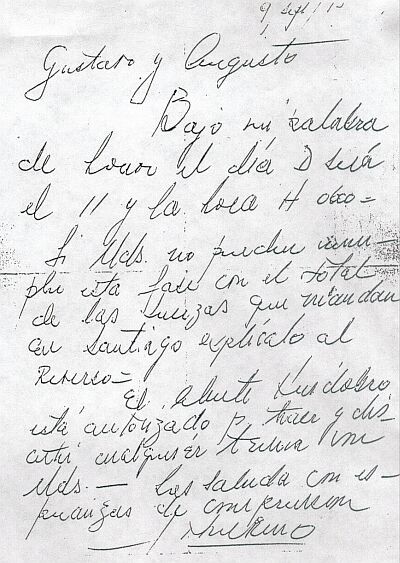 9/sept/73
Gustavo y Augusto
Bajo mi palabra
de honor el día D será
el 11 y la hora H 0600=
Si Uds. no pueden cum-
plir esta fase con el total
de las fuerzas que mandan
en Santiago explícalo al
Reverso=
El Almte Huidobro
está autorizado p. traer y dis-
cutir cualquier tema con
Uds. — Les saluda con es-
peranzas de comprensión
Merino